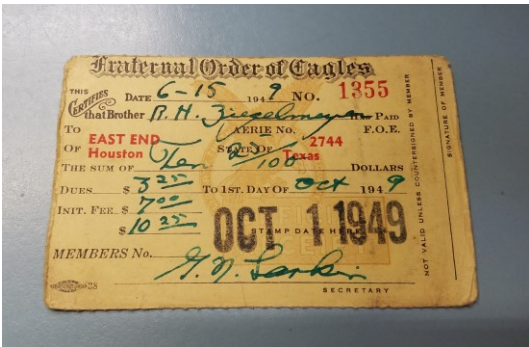 Fraternal Order of Eagles
THIS CERTIFIES DATE 6-15 1949 NO. 1355
that Brother R. H. Ziegelmeyer Has PAID
TO EAST END AERIE No. 2744 F.O.E.
OF Houston STATE OF Texas
THE SUM OF Ten 25/100 DOLLARS
DUES $ 3 25 TO 1ST. DAY OF Oct 1949
INIT. FEE $ 7 00
$ 10 25 STAMP DATE HERE
OCT 1 1949
MEMBERS No.
G. N. Larkin
SECRETARY
NOT VALID UNLESS COUNTERSIGNED BY MEMBER
SIGNATURE OF MEMBER